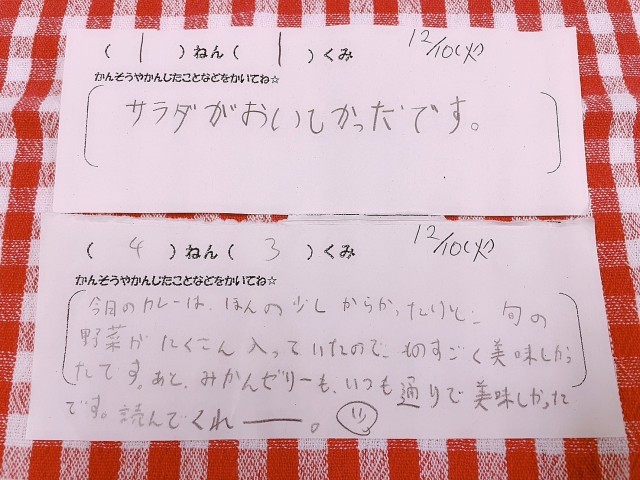 ( 1 )ねん( 1 )くみ 12/10(火)
かんそうやかんじたことなどをかいてね☆
サラダがおいしかっだです。
( 4 )ねん( 3 )くみ 12/10(火)
かんそうやかんじたことなどをかいてね☆
今日のカレーは、ほんの少しからかったけど、旬の
野菜がたくさん入っていたので、ものすごく美味しかっ
たです。あと、みかんゼリーも、いつも通りで美味しかった
です。読んでくれー。